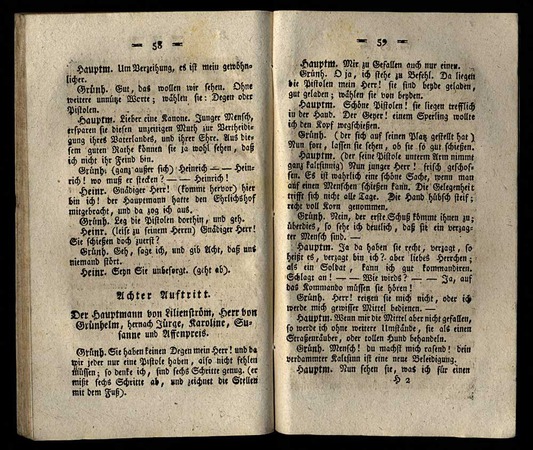 58
Hauptm. Um Verzeihung, es ist mein gewöhn-
licher.
Grünh. Gut, das wollen wir sehen. Ohne
weitere unnütze Worte; wählen sie: Degen oder
Pistolen.
Hauptm. Lieber eine Kanone. Junger Mensch,
ersparen sie diesen unzeitigen Muth zur Vertheidi-
gung ihres Vaterlandes, und ihrer Ehre. Aus die-
sem guten Rathe können sie ja wohl sehen, daß
ich nicht ihr Feind bin.
Grünh. (ganz außer sich) Heinrich — — Hein-
rich! wo muß er stecken? — — Heinrich!
Heinr. Gnädiger Herr! (kommt hervor) hier
bin ich! der Hauptmann hatte den Ehrlichshof
mitgebracht, und da zog ich aus.
Grünh. Leg die Pistolen dorthin, und geh.
Heinr. (leise zu seinem Herrn) Gnädiger Herr!
Sie schießen doch zuerst?
Grünh. Geh, sage ich, und gib Acht, daß uns
niemand stört.
Heinr. Seyn Sie unbesorgt. (geht ab).
Achter Auftritt.
Der Hauptmann von Lilienström, Herr von
Grünhelm, hernach Jürge, Karoline, Su-
sanne und Affenpreis.
Grünh. Sie haben keinen Degen mein Herr! und da
wir jeder nur eine Pistole haben, also nicht fehlen
müssen; so denke ich, sind sechs Schritte genug. (er
mißt sechs Schritte ab, und zeichnet die Stellen
mit dem Fuß).
59
Hauptm. Mir zu Gefallen auch nur einen.
Grünh. O ja, ich stehe zu Befehl. Da liegen
die Pistolen mein Herr! sie sind beyde geladen,
gut geladen; wählen sie von beyden.
Hauptm. Schöne Pistolen! sie liegen trefflich
in der Hand. Der Geyer! einem Sperling wollte
ich den Kopf wegschießen.
Grünh. (der sich auf seinen Platz gestellt hat)
Nun fort, lassen sie sehen, ob sie so gut schießen.
Hauptm. (der seine Pistole unterm Arm nimmt
ganz kaltsinnig) Nun junger Herr! frisch geschos-
sen. Es ist wahrlich eine schöne Sache, wenn man
auf einen Menschen schießen kann. Die Gelegenheit
trifft sich nicht alle Tage. Die Hand hübsch steif;
recht voll Korn genommen.
Grünh. Nein, der erste Schuß kömmt ihnen zu;
überdies, so sehe ich deutlich, daß sie ein verzag-
ter Mensch sind. —
Hauptm. Ja da haben sie recht, verzagt, so
heißt es, verzagt bin ich? aber liebes Herrchen;
als ein Soldat, kann ich gut kommandiren.
Schlagt an! — — Wie wirds? — — Ja, auf
das Kommando müssen sie hören!
Grünh. Herr! reitzen sie mich nicht, oder ich
werde mich gewisser Mittel bedienen. —
Hauptm. Wenn mir die Mittel aber nicht gefallen,
so werde ich ohne weitere Umstände, sie als einen
Straßenräuber, oder tollen Hund behandeln.
Grünh. Mensch! du machst mich rasend! dein
verdammter Kaltsinn ist eine neue Beleidigung.
Hauptm. Nun sehen sie, was ich für einen
H 2